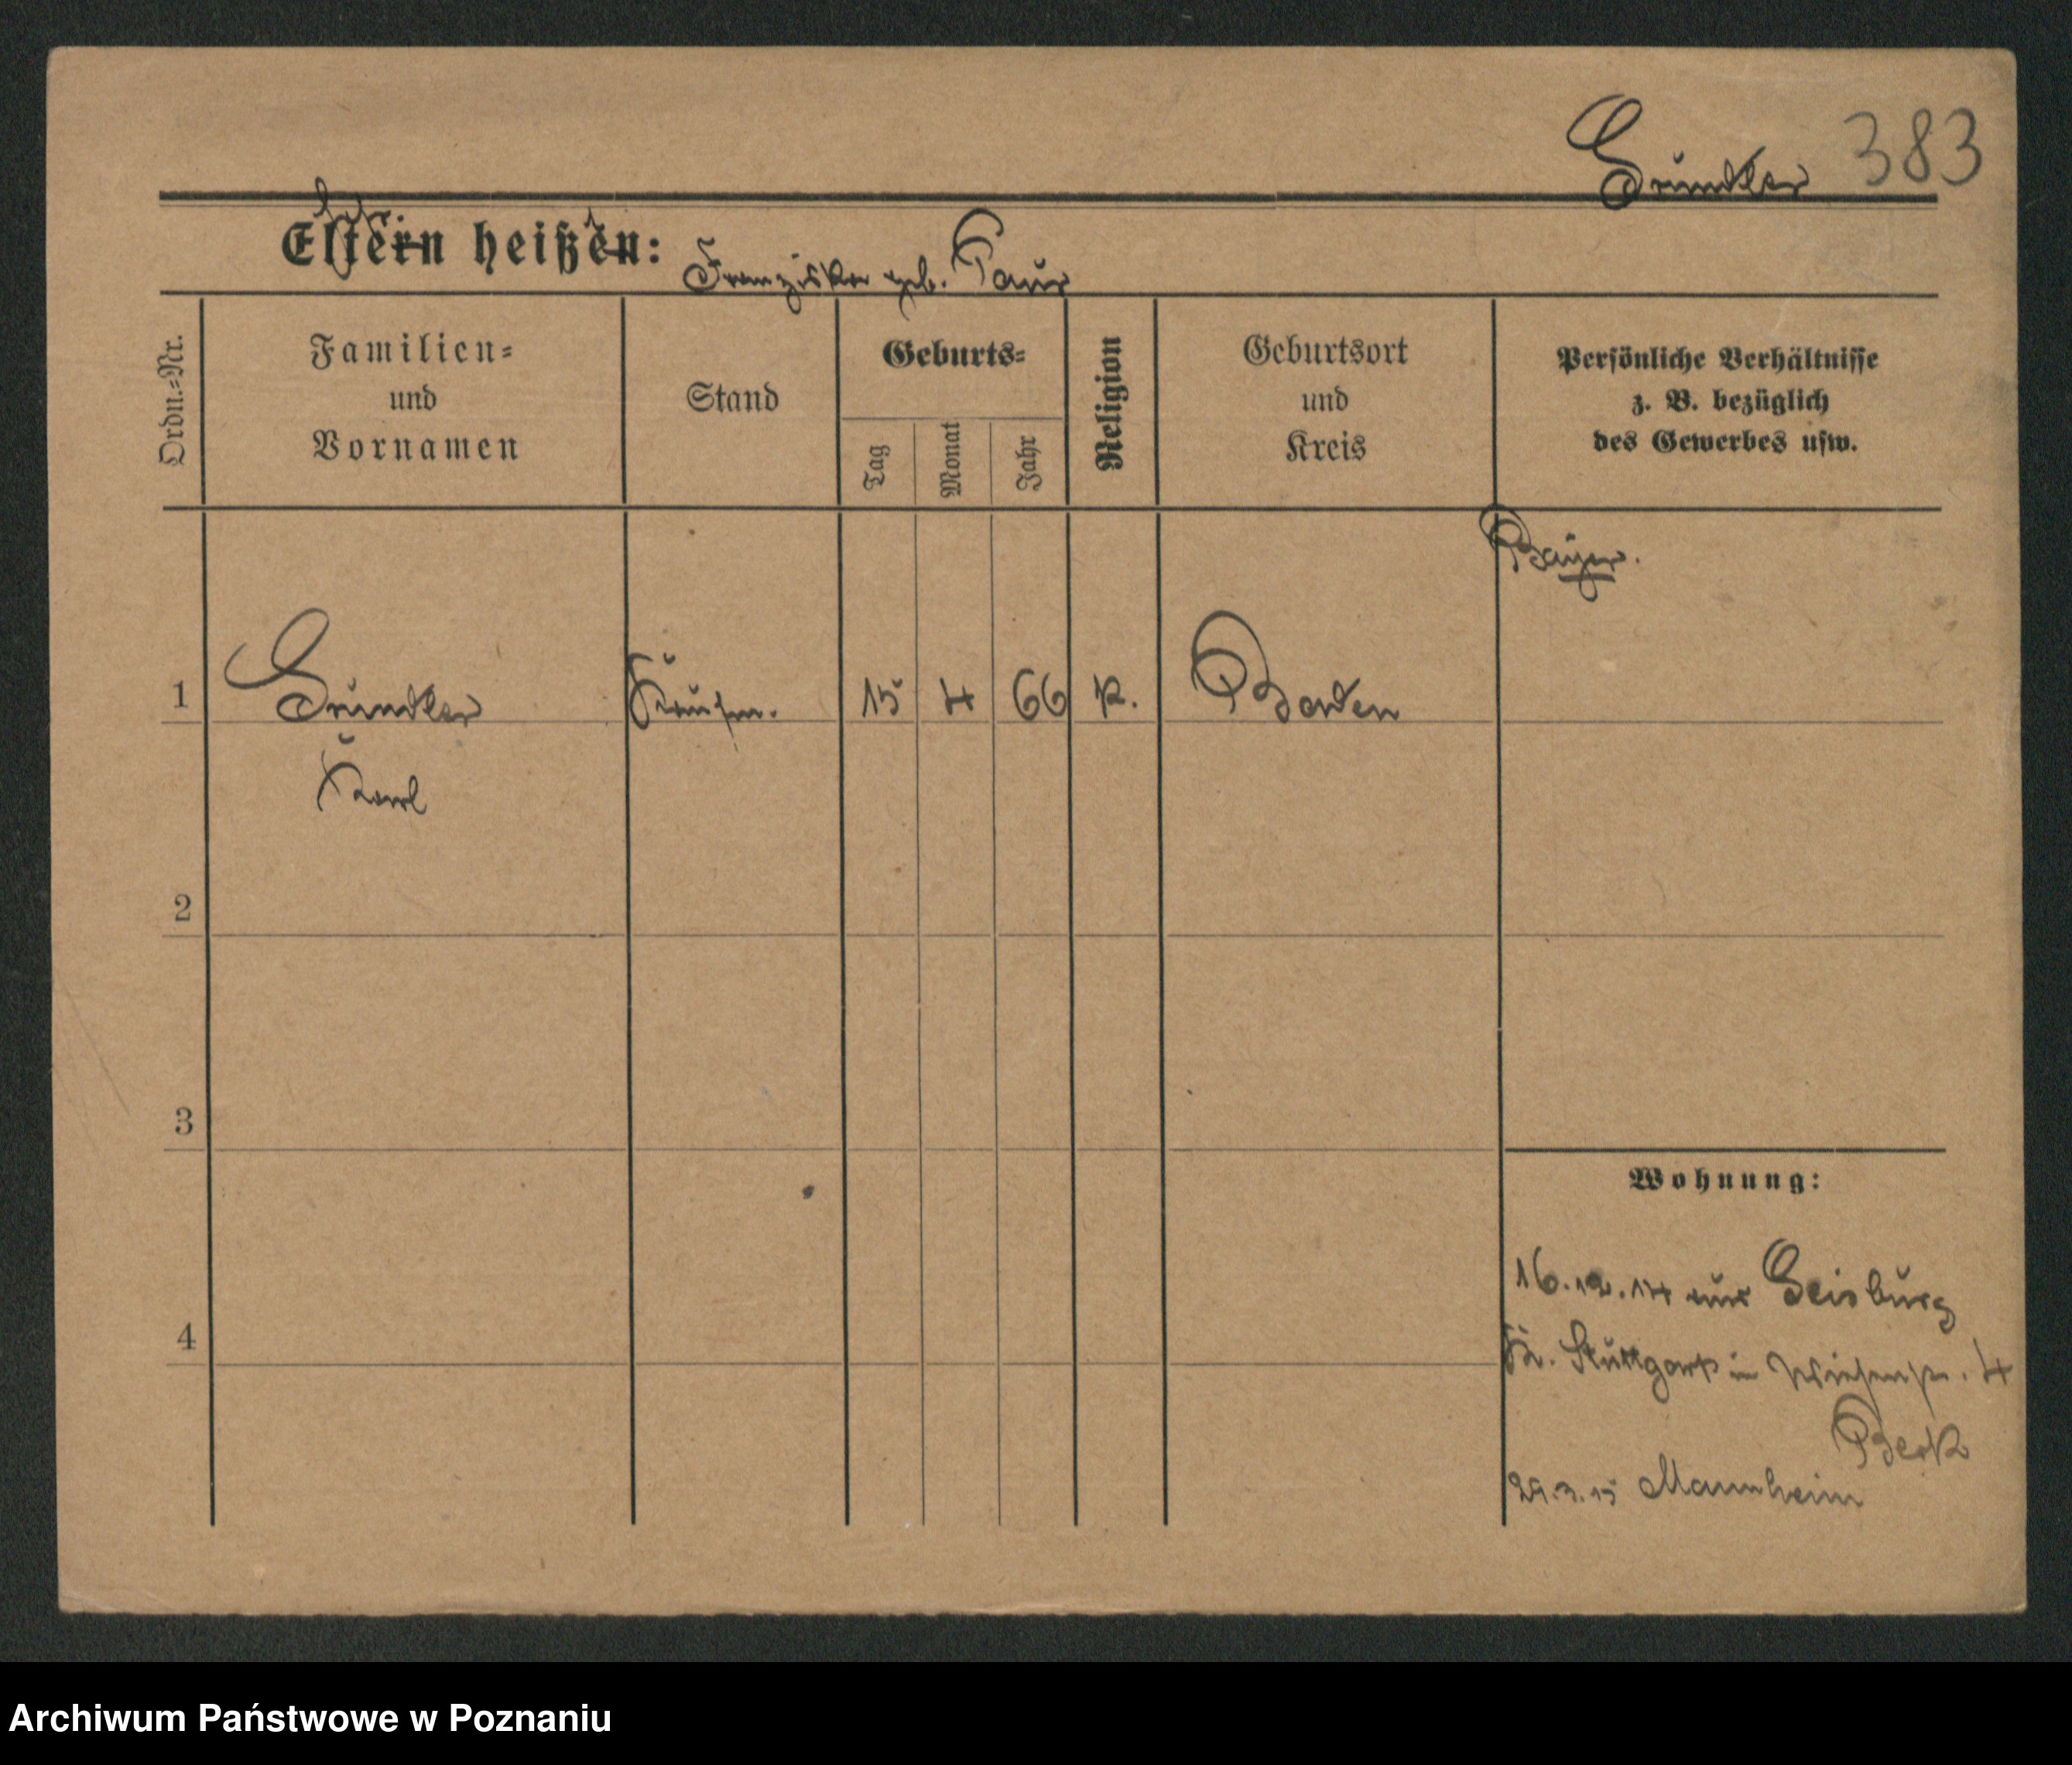 Gündler 383
Eltern heißen: Franziska geb. Paur
Ordn.=Nr.
Familien=
und
Vornamen
Stand
Geburts=
Tag
Monat
Jahr
Religion
Geburtsort
und
Kreis
Persönliche Verhältnisse
z. B. bezüglich
des Gewerbes usw.
Bayer.
1 Gündler Kaufm. 15 4 66 k. Baden
Karl
2
3
Wohnung:
16.12.14 aus Geisburg
4
Kr. Stuttgart in 4
Berk
29.3.15 Mannheim
Archiwum Państwowe w Poznaniu